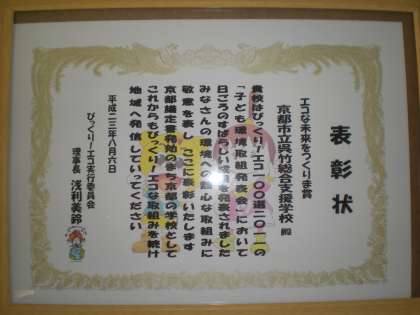 表彰状
エコな未来をつくりま賞
京都市立呉竹総合支援学校 殿
貴校はびっくり!エコ100選2011の
「子ども環境取組発表会」において
日ごろのすばらしい取組を発表されました
みなさんの環境への熱心な取組みに
敬意を表し ここに表彰いたします
京都議定書発効のまち京都の学校として
これからもびっくり!エコな取組みを続け
地域へ発信していってください
平成二三年八月六日
びっくり!エコ実行委員会
理事長 浅利美鈴